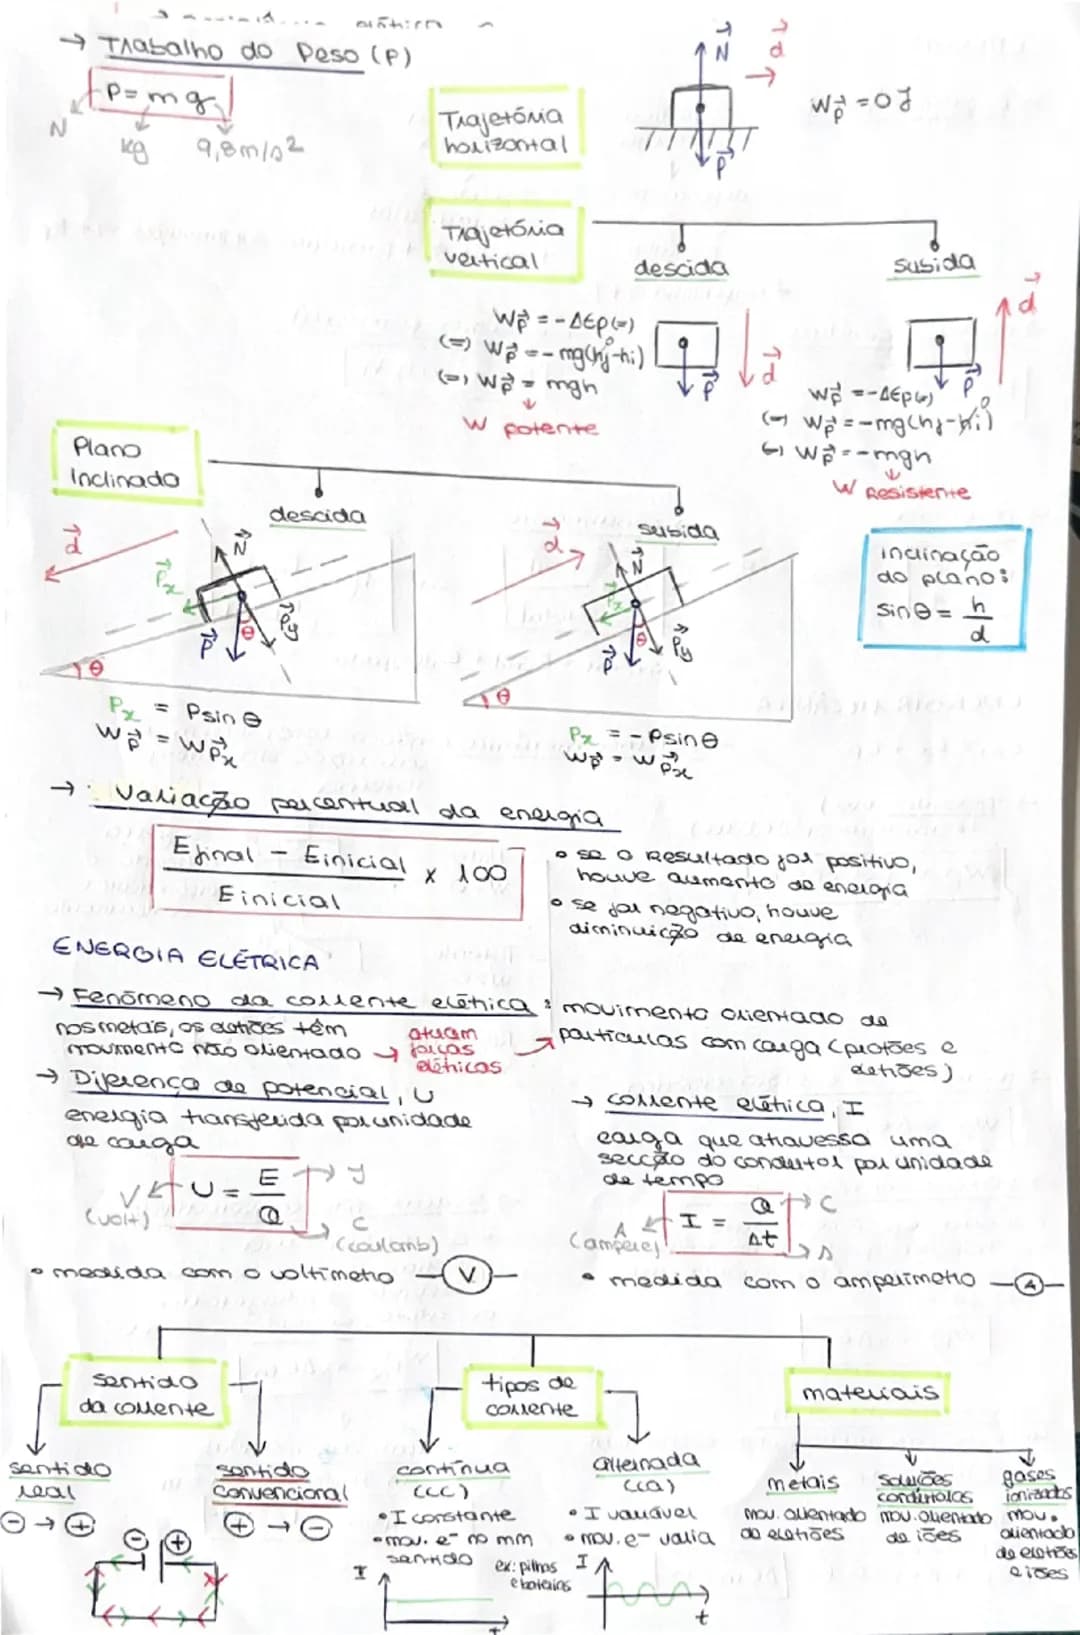 → Trabalho do Peso (P)
P = mg
N
kg
9,8m/s²
Trajetória
horizontal
N
d
P
Wp = 0J
Trajetória
vertical
descida
subida
Wp = -ΔEp (=)
(=) Wp = -mg(hf-hi)
(=) Wp = mgh
W potente
P
d
d
P
Wp = -ΔEp (=)
(=) Wp = -mg(hf-hi)
(=) Wp = -mgh
W Resistente
Plano
Inclinado
descida
subida
d
N
Px
Py
P
θ
θ
Px = P sin θ
Wp = Wpx
d
N
Px
Py
P
θ
θ
Px = - P sin θ
Wp = Wpx
inclinação
do plano:
sin θ = h/d
→ Variação percentual da energia
Efinal - Einicial / Einicial x 100
• se o resultado for positivo,
houve aumento de energia
• se for negativo, houve
diminuição de energia
ENERGIA ELÉTRICA
→ Fenómeno da corrente elétrica : movimento orientado de
partículas com carga (protões e
eletrões)
nos metais, os eletrões têm
movimento não orientado → atuam
forças
elétricas
→ Diferença de potencial, U
energia transferida por unidade
de carga
U = E/Q
V
(volt)
J
C
(coulomb)
• medida com o voltímetro
V
→ corrente elétrica, I
carga que atravessa uma
secção do condutor por unidade
de tempo
I = Q/Δt
A
(ampere)
C
s
• medida com o amperímetro
A
sentido
da corrente
tipos de
corrente
materiais
sentido
real
⊖ → ⊕
sentido
convencional
⊕ → ⊖
⊖ ⊕
contínua
(CC)
• I constante
• mov. e⁻ no mm
sentido
ex: pilhas
e baterias
I
t
alternada
(CA)
• I variável
• mov. e⁻ varia
I
t
metais
mov. orientado
de eletrões
soluções
condutoras
mov. orientado
de iões
gases
ionizados
mov.
orientado
de eletrões
e iões